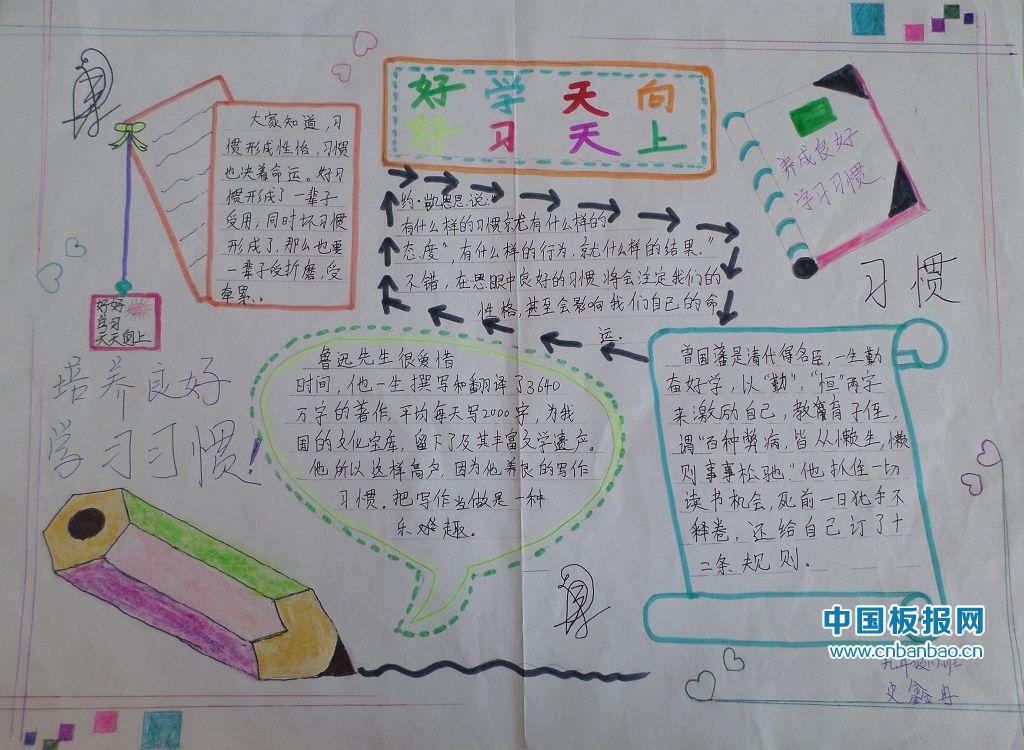 好学天向
好习天上
大家知道,习
惯形成性恪,习惯
也决着命运。好习
惯形成了一辈子
受用;同时坏习惯
形成了,那么也要
一辈子受折磨,受
牵累。
好好
学习
天天向上
约·凯恩思说:
有什么样的习惯就有什么样的
态度”,有什么样的行为,就什么样的结果.”
不错,在思眼中良好的习惯将会注定我们的
性格,甚至会影响我们自己的命
运.
养成良好
学习习惯
习惯
培养良好
学习习惯!
鲁迅先生很爱惜
时间,他一生撰写和翻译了3640
万字的著作,平均每天写2000字,为我
国的文化宝库,留下了及其丰富文学遗产。
他所以这样高夕,因为他养良的写作
习惯,把写作当做是一种
乐趣。
曾国藩是清仕得名臣,一生勤
奋好学,以“勤”,“恒”两字
来激励自己,教育子侄,
谓“百种弊病,皆从懒生,懒
则事事松驰.”他抓住一切
读书机会,死前一日犹手不
释卷,还给自己订了十
二条规则.
中国板报网
www.cnbanbao.cn
史鑫冉